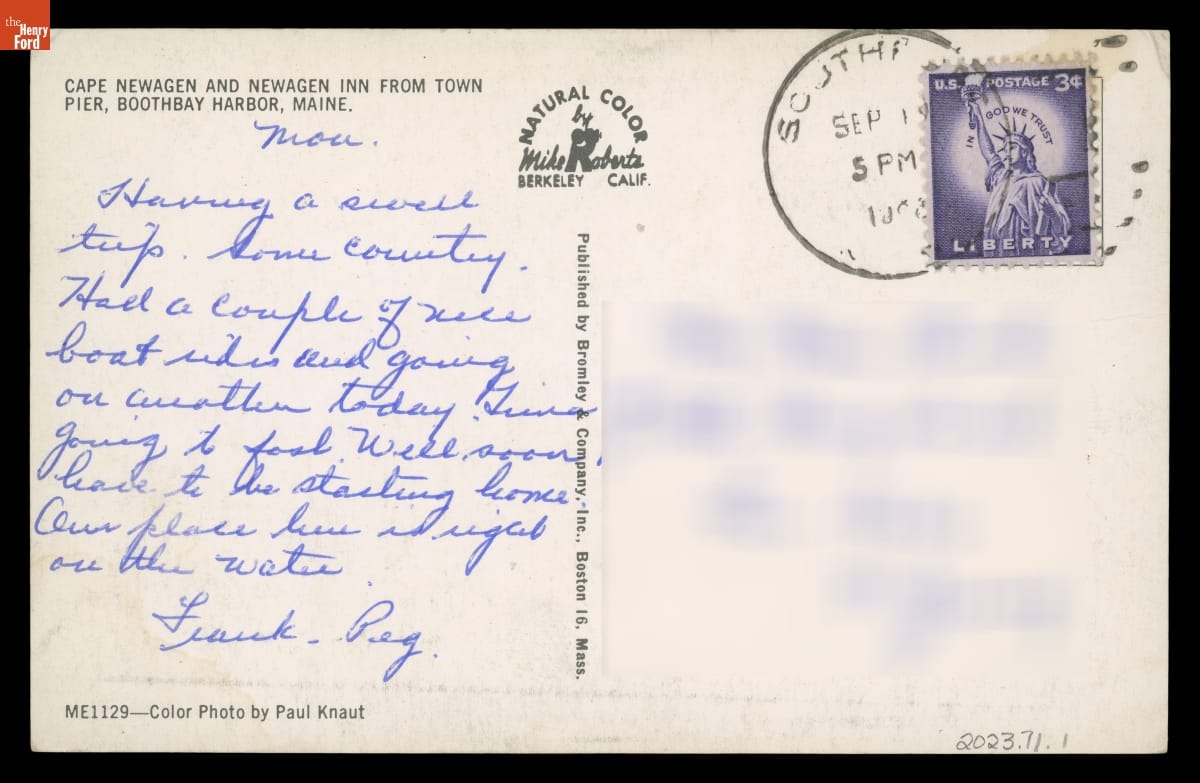 the
Henry
Ford
CAPE NEWAGEN AND NEWAGEN INN FROM TOWN
PIER, BOOTHBAY HARBOR, MAINE.
Mon.
Having a swell
trip. Some country.
Had a couple of nice
boat rides and going
on another today. Time
going to fast. Well soon
have to be starting home.
Our place here is right
on the water.
Frank - Peg.
ME1129—Color Photo by Paul Knaut
NATURAL COLOR
by
Mike Roberts
BERKELEY CALIF.
Published by Bromley & Company, Inc., Boston 16, Mass.
SEP
5 PM
U.S. POSTAGE 3¢
IN GOD WE TRUST
LIBERTY
2023.71.1